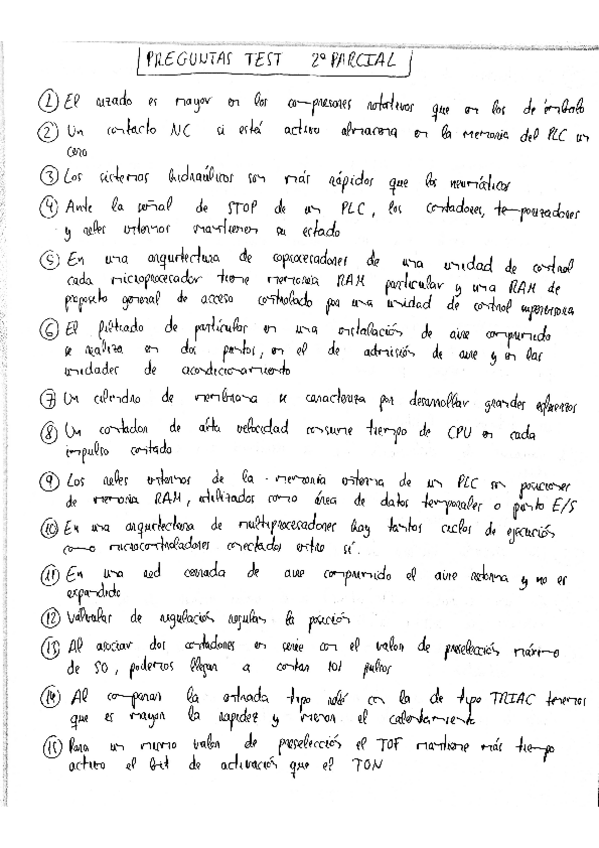 PREGUNTAS TEST 2º PARCIAL
① El rizado es mayor en los compresores rotativos que en los de émbolo
② Un contacto NC si está activo almacena en la memoria del PLC un
cero
③ Los sistemas hidráulicos son más rápidos que los neumáticos
④ Ante la señal de STOP de un PLC, los contadores, temporizadores
y relés internos mantienen su estado
⑤ En una arquitectura de coprocesadores de una unidad de control
cada microprocesador tiene memoria RAM particular y una RAM de
proposito general de acceso controlado por una unidad de control supervisora
⑥ El filtrado de partículas en una instalación de aire comprimido
se realiza en dos puntos, en el de admisión de aire y en las
unidades de acondicionamiento
⑦ Un cilindro de membrana se caracteriza por desarrollar grandes esfuerzos
⑧ Un contador de alta velocidad consume tiempo de CPU en cada
impulso contado
⑨ Los relés internos de la memoria interna de un PLC son posiciones
de memoria RAM, utilizados como área de datos temporales o punto E/S
⑩ En una arquitectura de multiprocesadores hay tantos ciclos de ejecución
como microcontroladores conectados entre sí.
⑪ En una red cerrada de aire comprimido el aire retorna y no es
expandido
⑫ Valvulas de regulación regulan la posición
⑬ Al asociar dos contadores en serie con el valor de preselección máximo
de 50, podemos llegar a contar 101 pulsos
⑭ Al comparar la entrada tipo relé con la de tipo TRIAC tenemos
que es mayor la rapidez y menor el calentamiento
⑮ Para un mismo valor de preselección el TOF mantiene más tiempo
activo el bit de activación que el TON